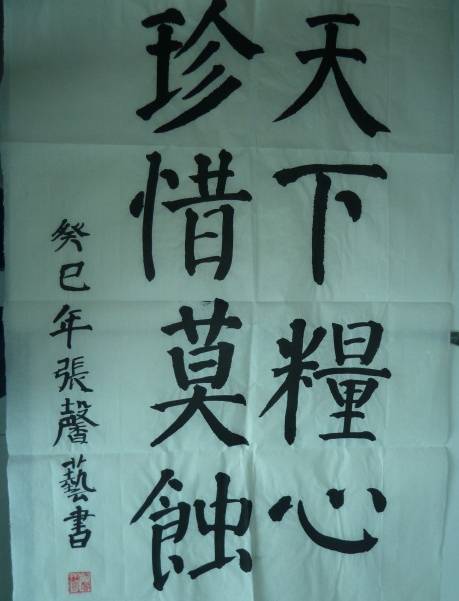 天下糧心
珍惜莫蝕
癸巳年張馨藝書